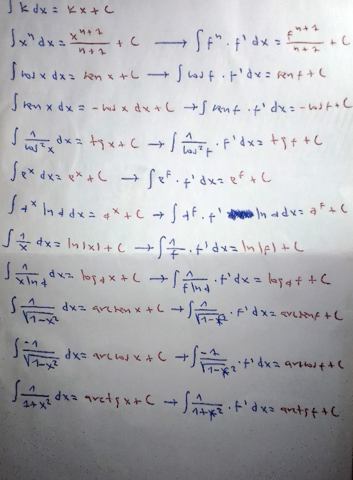 ∫ k dx = kx + C
∫ xⁿ dx = xⁿ⁺¹/(n+1) + C → ∫ fⁿ · f' dx = fⁿ⁺¹/(n+1) + C
∫ cos x dx = sen x + C → ∫ cos f · f' dx = sen f + C
∫ sen x dx = -cos x dx + C → ∫ sen f · f' dx = -cos f + C
∫ 1/cos²x dx = tg x + C → ∫ 1/cos²f · f' dx = tg f + C
∫ eˣ dx = eˣ + C → ∫ eᶠ · f' dx = eᶠ + C
∫ aˣ ln a dx = aˣ + C → ∫ aᶠ · f' ln a dx = aᶠ + C
∫ 1/x dx = ln|x| + C → ∫ 1/f · f' dx = ln|f| + C
∫ 1/(x ln a) dx = logₐ x + C → ∫ 1/(f ln a) · f' dx = logₐ f + C
∫ 1/√(1-x²) dx = arcsen x + C → ∫ 1/√(1-f²) · f' dx = arcsen f + C
∫ -1/√(1-x²) dx = arccos x + C → ∫ -1/√(1-f²) · f' dx = arccos f + C
∫ 1/(1+x²) dx = arctg x + C → ∫ 1/(1+f²) · f' dx = arctg f + C